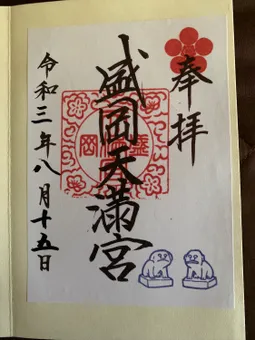 奉拝
盛岡天満宮
令和三年八月十五日